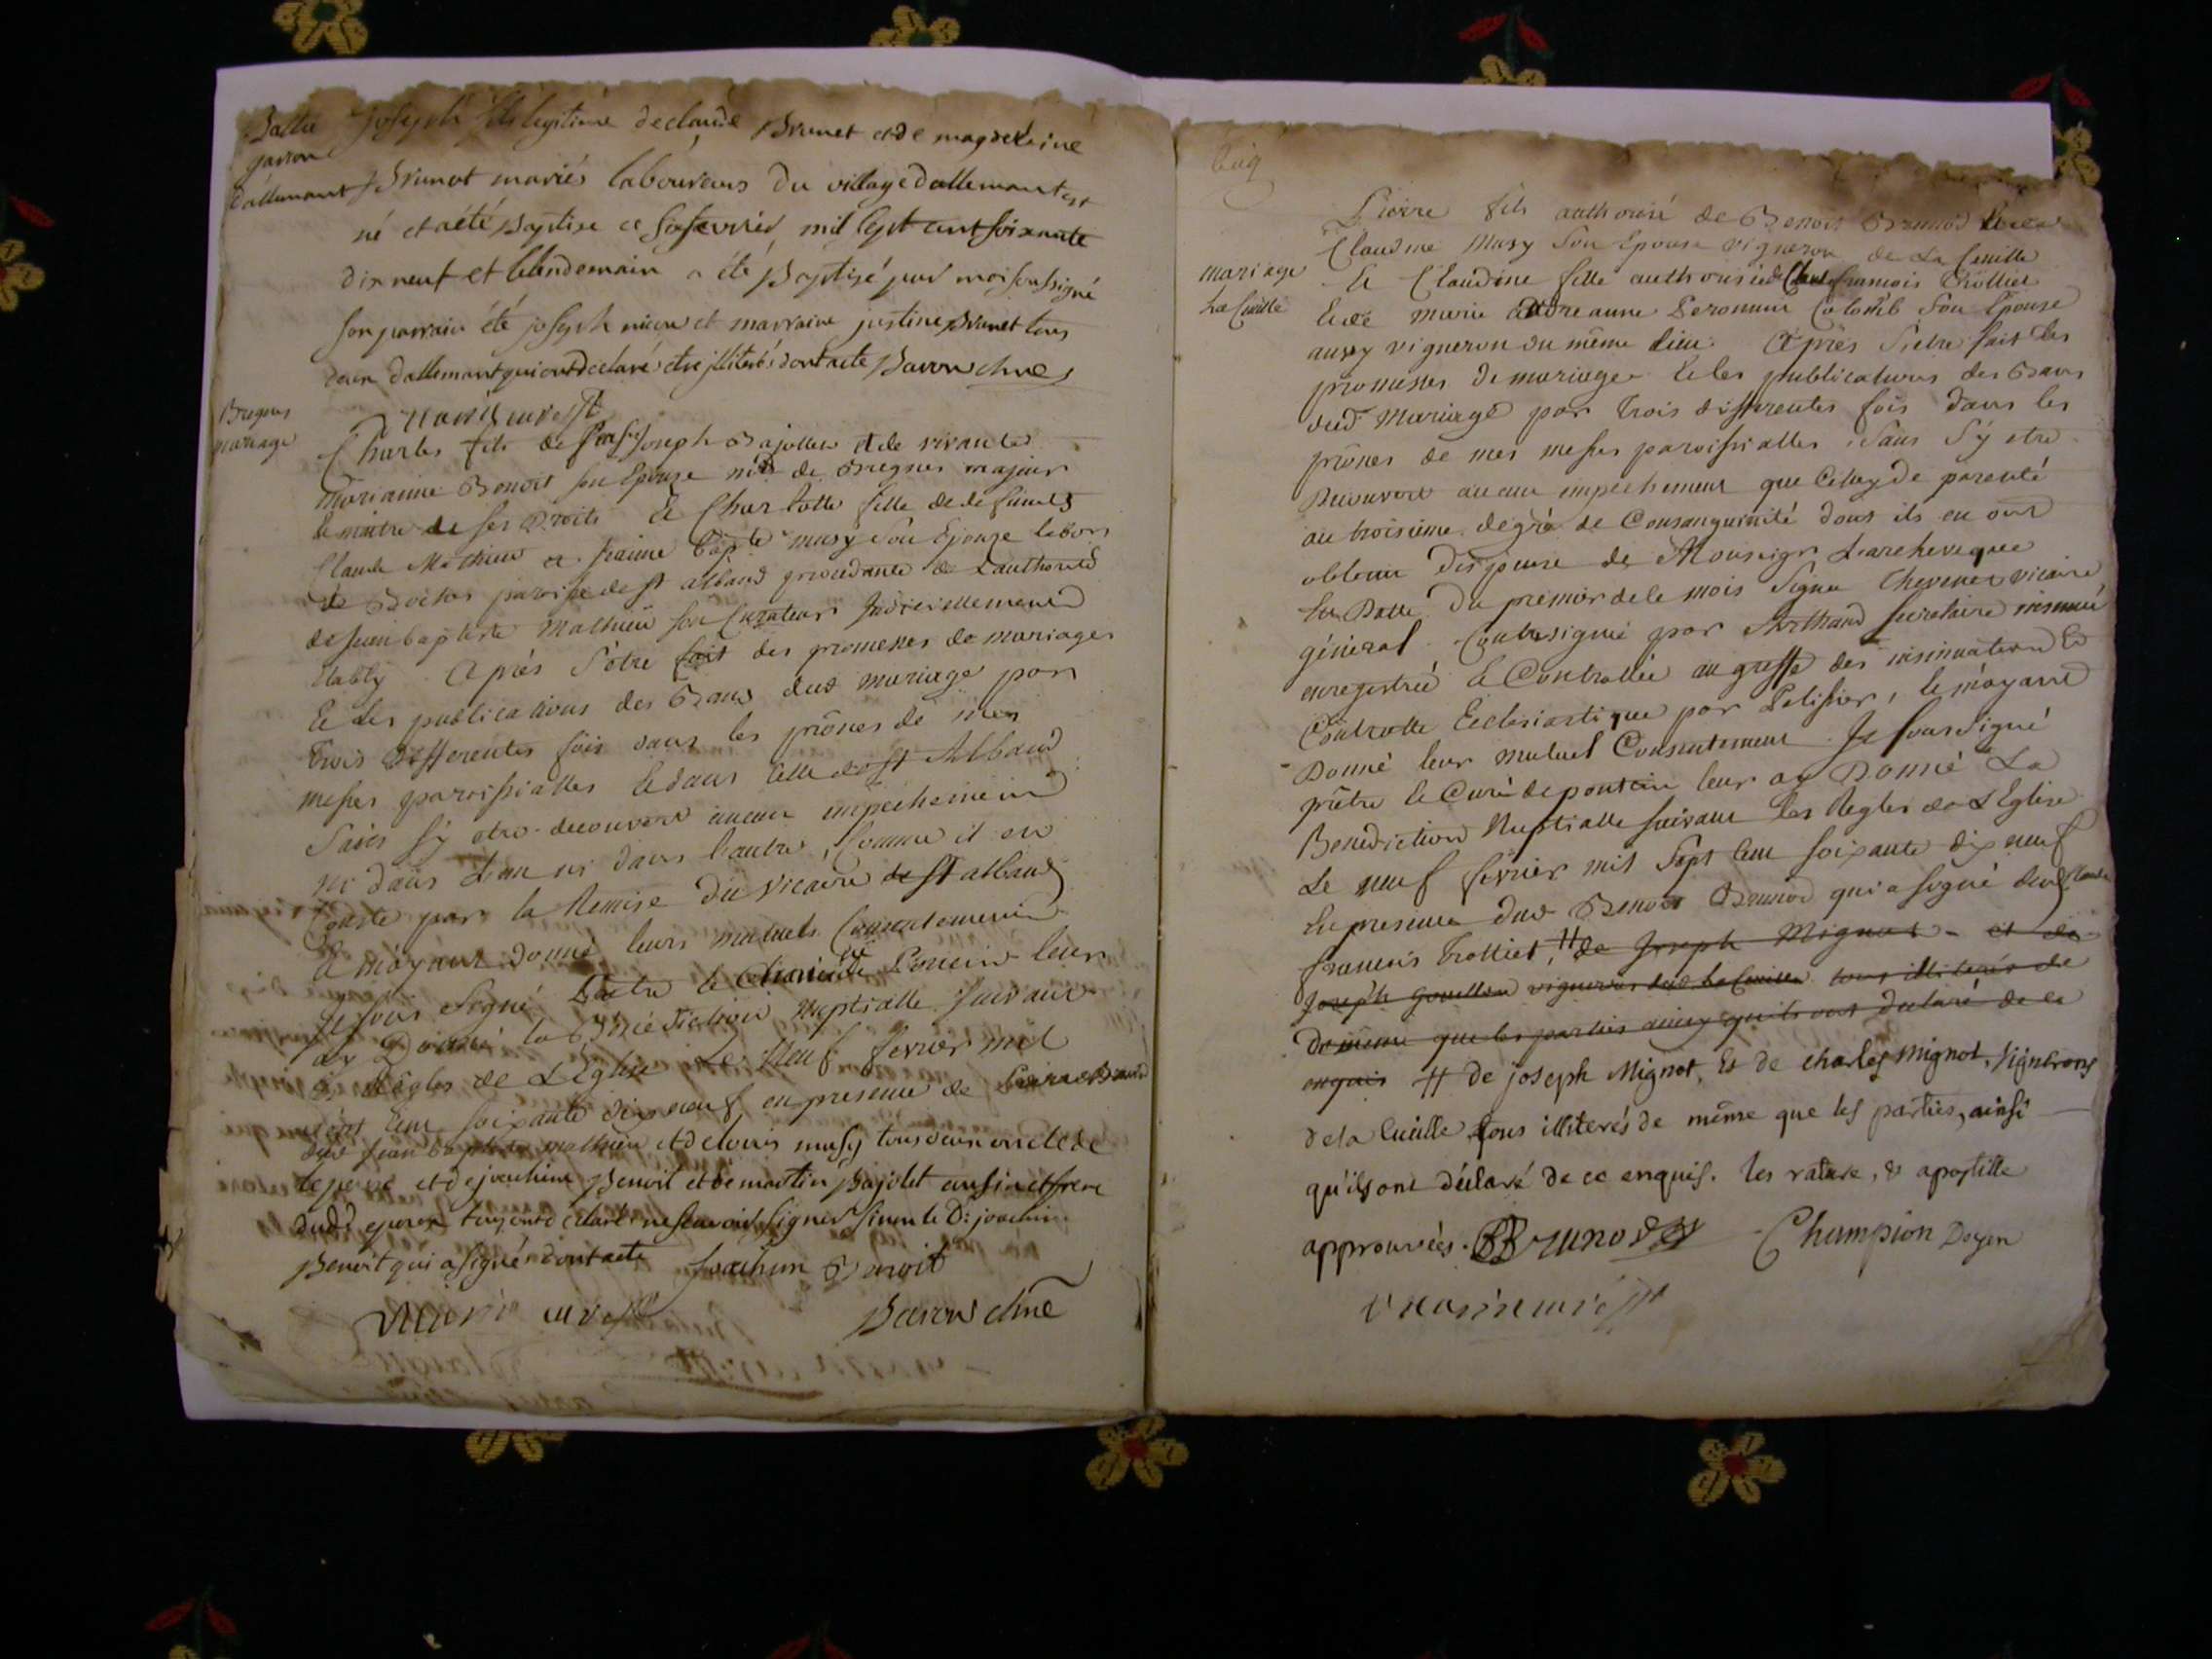 Battê
garson
d'allemant
joseph fils legitime de claude Brunet et de magdeleine
Brunet mariés laboureurs du village dallemant est
né et a été Baptise ce six fevrier mil sept cent soixante
dix neuf et le lendemain a été Baptisé par moi soussigné
son parrain été joseph et marraine justine Brunet tous
deux dallemant qui ont declaré etre illiterés dont acte Baron chne
Bregnes
mariage
Charles fils de joseph Bajollet et de vivante
Mariaime Benoit son Epouse né de Bregnes majeur
le maitre de ses Droits Et Charlotte fille de defunts
Claude Mathieu et musy son Epouse
de paroisse de st alband procedante de L'authorité
de Jean baptiste Mathieu son Curateur Judiciellement
Etably Après S'être fait des promesses de mariages
Et les publications des Bans dud mariage par
trois differentes fois dans les prônes de mes
messes paroissialles Et dans celle de st Alband
Sans s'y etre decouvert aucun empechement
ni dans l'un ni dans l'autre, Comme il en
Conste par la Remise du vicaire de st alband
Et moyant donné leurs mutuels Consentement
Je sous signé Poncin leur
ay Donné la Benediction Nuptialle suivant
les Regles de L'Eglise Le Neuf fevrier mil
sept Cent soixante dix neuf en presence de
dud jean baptiste mathieu et de louis musy tous deux oncle de
lepouse et de joachim Benoit et de martin Bajolet cousin et frere
dud epoux tous ont déclaré ne scavoir signer sinon le D: joachim
Benoit qui a signé dont acte joachim Benoit
Baron chne
mariage
La Cueille
Pierre fils authorisé de Benoit Brunod
Claudine Musy Son Epouse vigneron de La Cueille
Et Claudine fille authorisée de Claude françois Trolliet
Et de marie Colomb Son Epouse
aussy vigneron du même lieu. Après S'etre fait les
promesses de mariage Et les publications des Bans
dud Mariage par trois differentes fois dans les
prônes de mes messes paroissialles Sans S'y etre
Decouvert aucun empechement que Celuy de parenté
au troisieme degré de Consanguinité dont ils en ont
obtenu Dispense de Monseigr L'archeveque
En Datte Du premier de le mois Signée Chevenet vicaire
général Contresignée par secretaire insinué
enregistrée et Controllée au greffe des insinuations Et
Controlle Ecclesiastique par Pelissier, le moyant
Donné leur mutuel Consentement. Je sous Signé
prêtre le Curé de pontcin leur ay Donné La
Benediction Nuptialle suivant les Regles de L'Eglise
Le neuf fevrier mil Sept Cent soixante dix neuf
En presence dud Benoit Brunod qui a signé dud Claude
francois Trolliet, # de Joseph Mignot - et de
Joseph Gouillon vignerons de la Cueille tous illiterés de
De même que les parties ainsy qu'ils ont declaré de ce
enquis # de joseph Mignot, Et de charles mignot, vignerons
de la Cueille tous illiterés de même que les parties, ainsi
qu'ils ont déclaré de ce enquis. les rature, & apostille
approuvées. BBrunod Champion Doyen